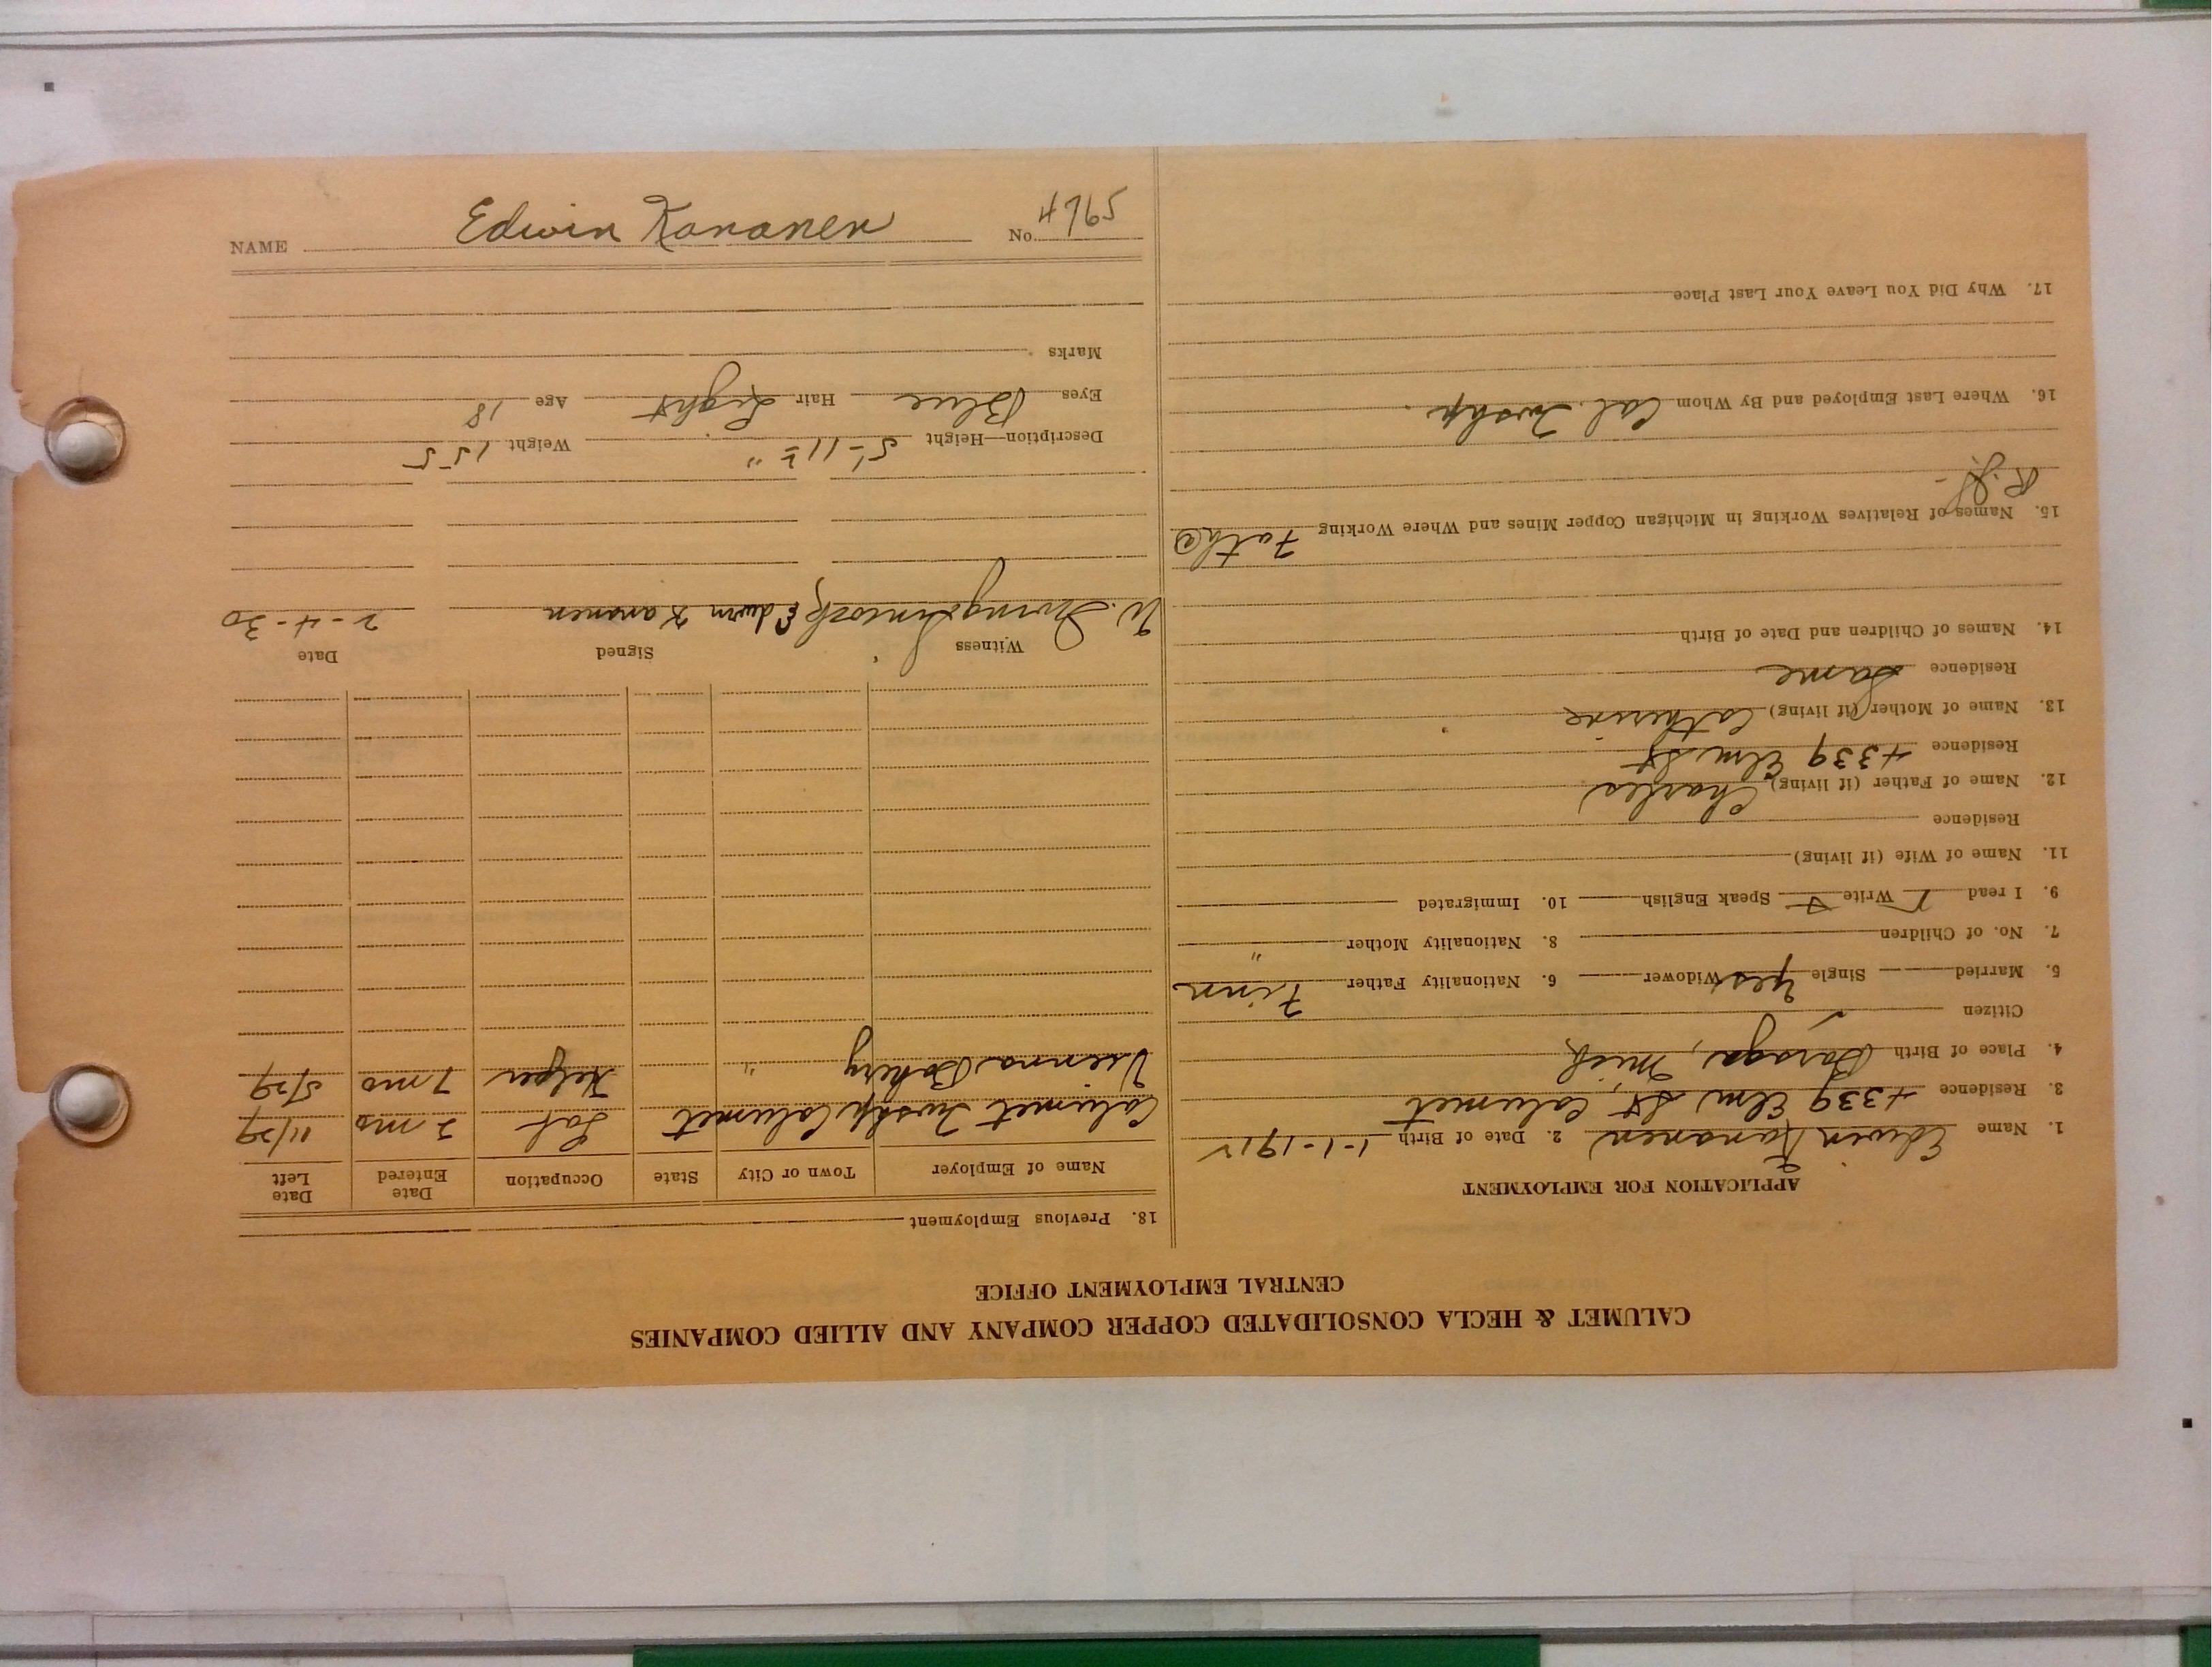 CALUMET & HECLA CONSOLIDATED COPPER COMPANY AND ALLIED COMPANIES
CENTRAL EMPLOYMENT OFFICE
APPLICATION FOR EMPLOYMENT
1. Name Edwin Kananen 2. Date of Birth 1-1-1912
3. Residence 4339 Elm St Calumet
4. Place of Birth Baraga, Mich
Citizen ✓
5. Married Single Yes Widower 6. Nationality Father Finn
7. No. of Children 8. Nationality Mother "
9. I read Write Speak English 10. Immigrated
11. Name of Wife (if living)
Residence
12. Name of Father (if living) Charles
Residence 4339 Elm St
13. Name of Mother (if living) Catherine
Residence Same
14. Names of Children and Date of Birth
15. Names of Relatives Working in Michigan Copper Mines and Where Working Father
16. Where Last Employed and By Whom Cal. Twshp.
17. Why Did You Leave Your Last Place
18. Previous Employment
Name of Employer Town or City State Occupation Date Entered Date Left
Calumet Twshp Calumet Lab 2 mo 11/29
Vienna Bakery " Helper 7 mo 5/29
Witness Signed Date
Edwin Kananen 2-4-30
Description—Height 5'-11½" Weight 155
Eyes Blue Hair Light Age 18
Marks
NAME Edwin Kananen No. 4765